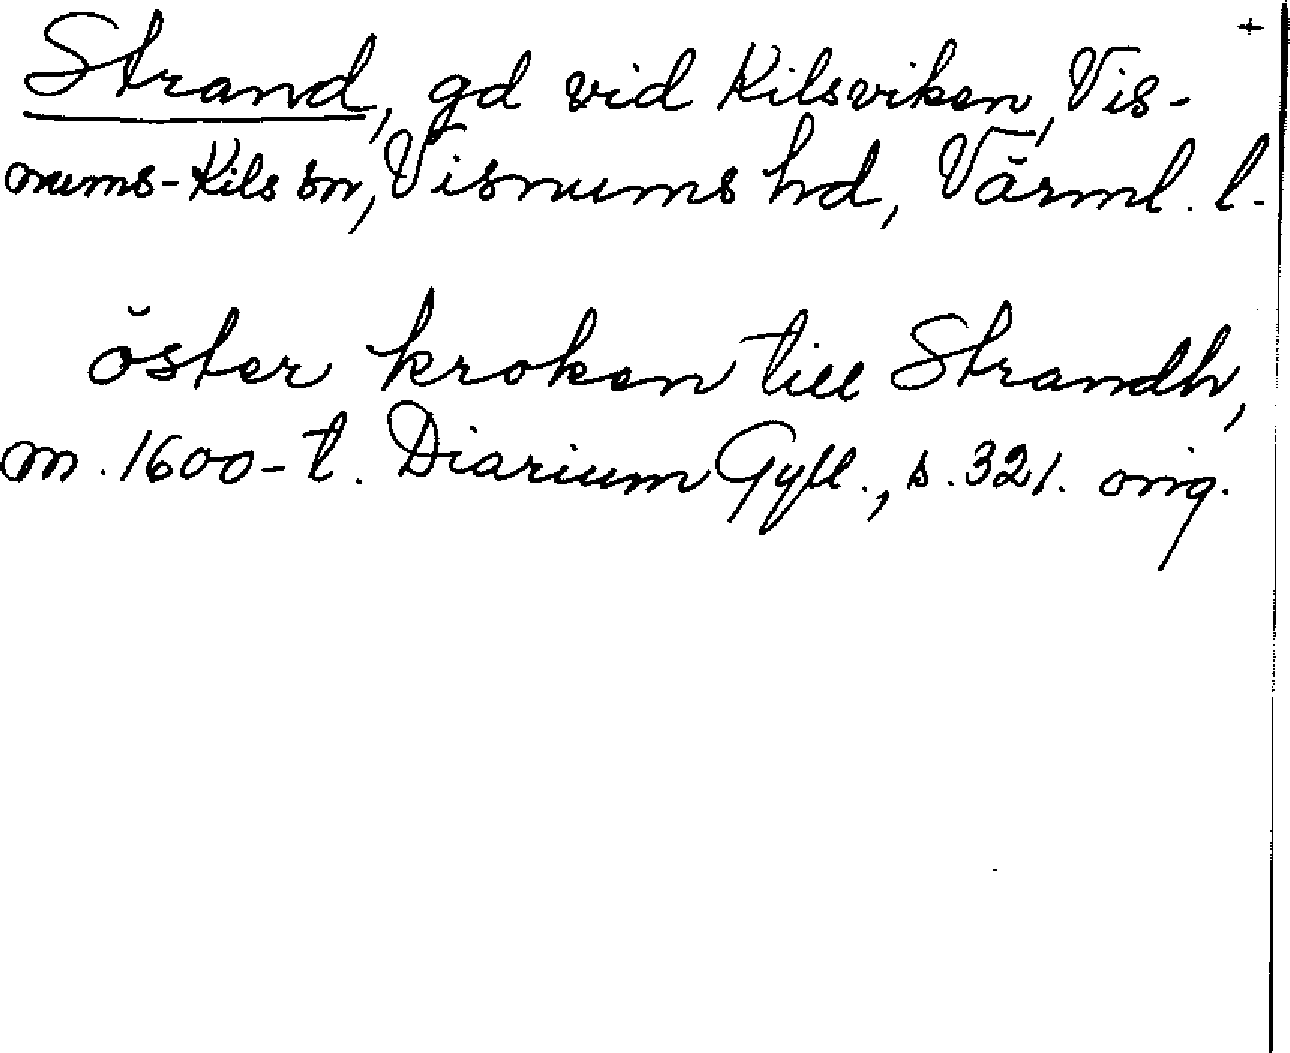 +
Strand, gd vid Kilsviken, Vis-
nums-Kils sn, Visnums hd, Värml. l.
öster kroken till Strandh,
m. 1600-t. Diarium Gyll., s. 321. orig.